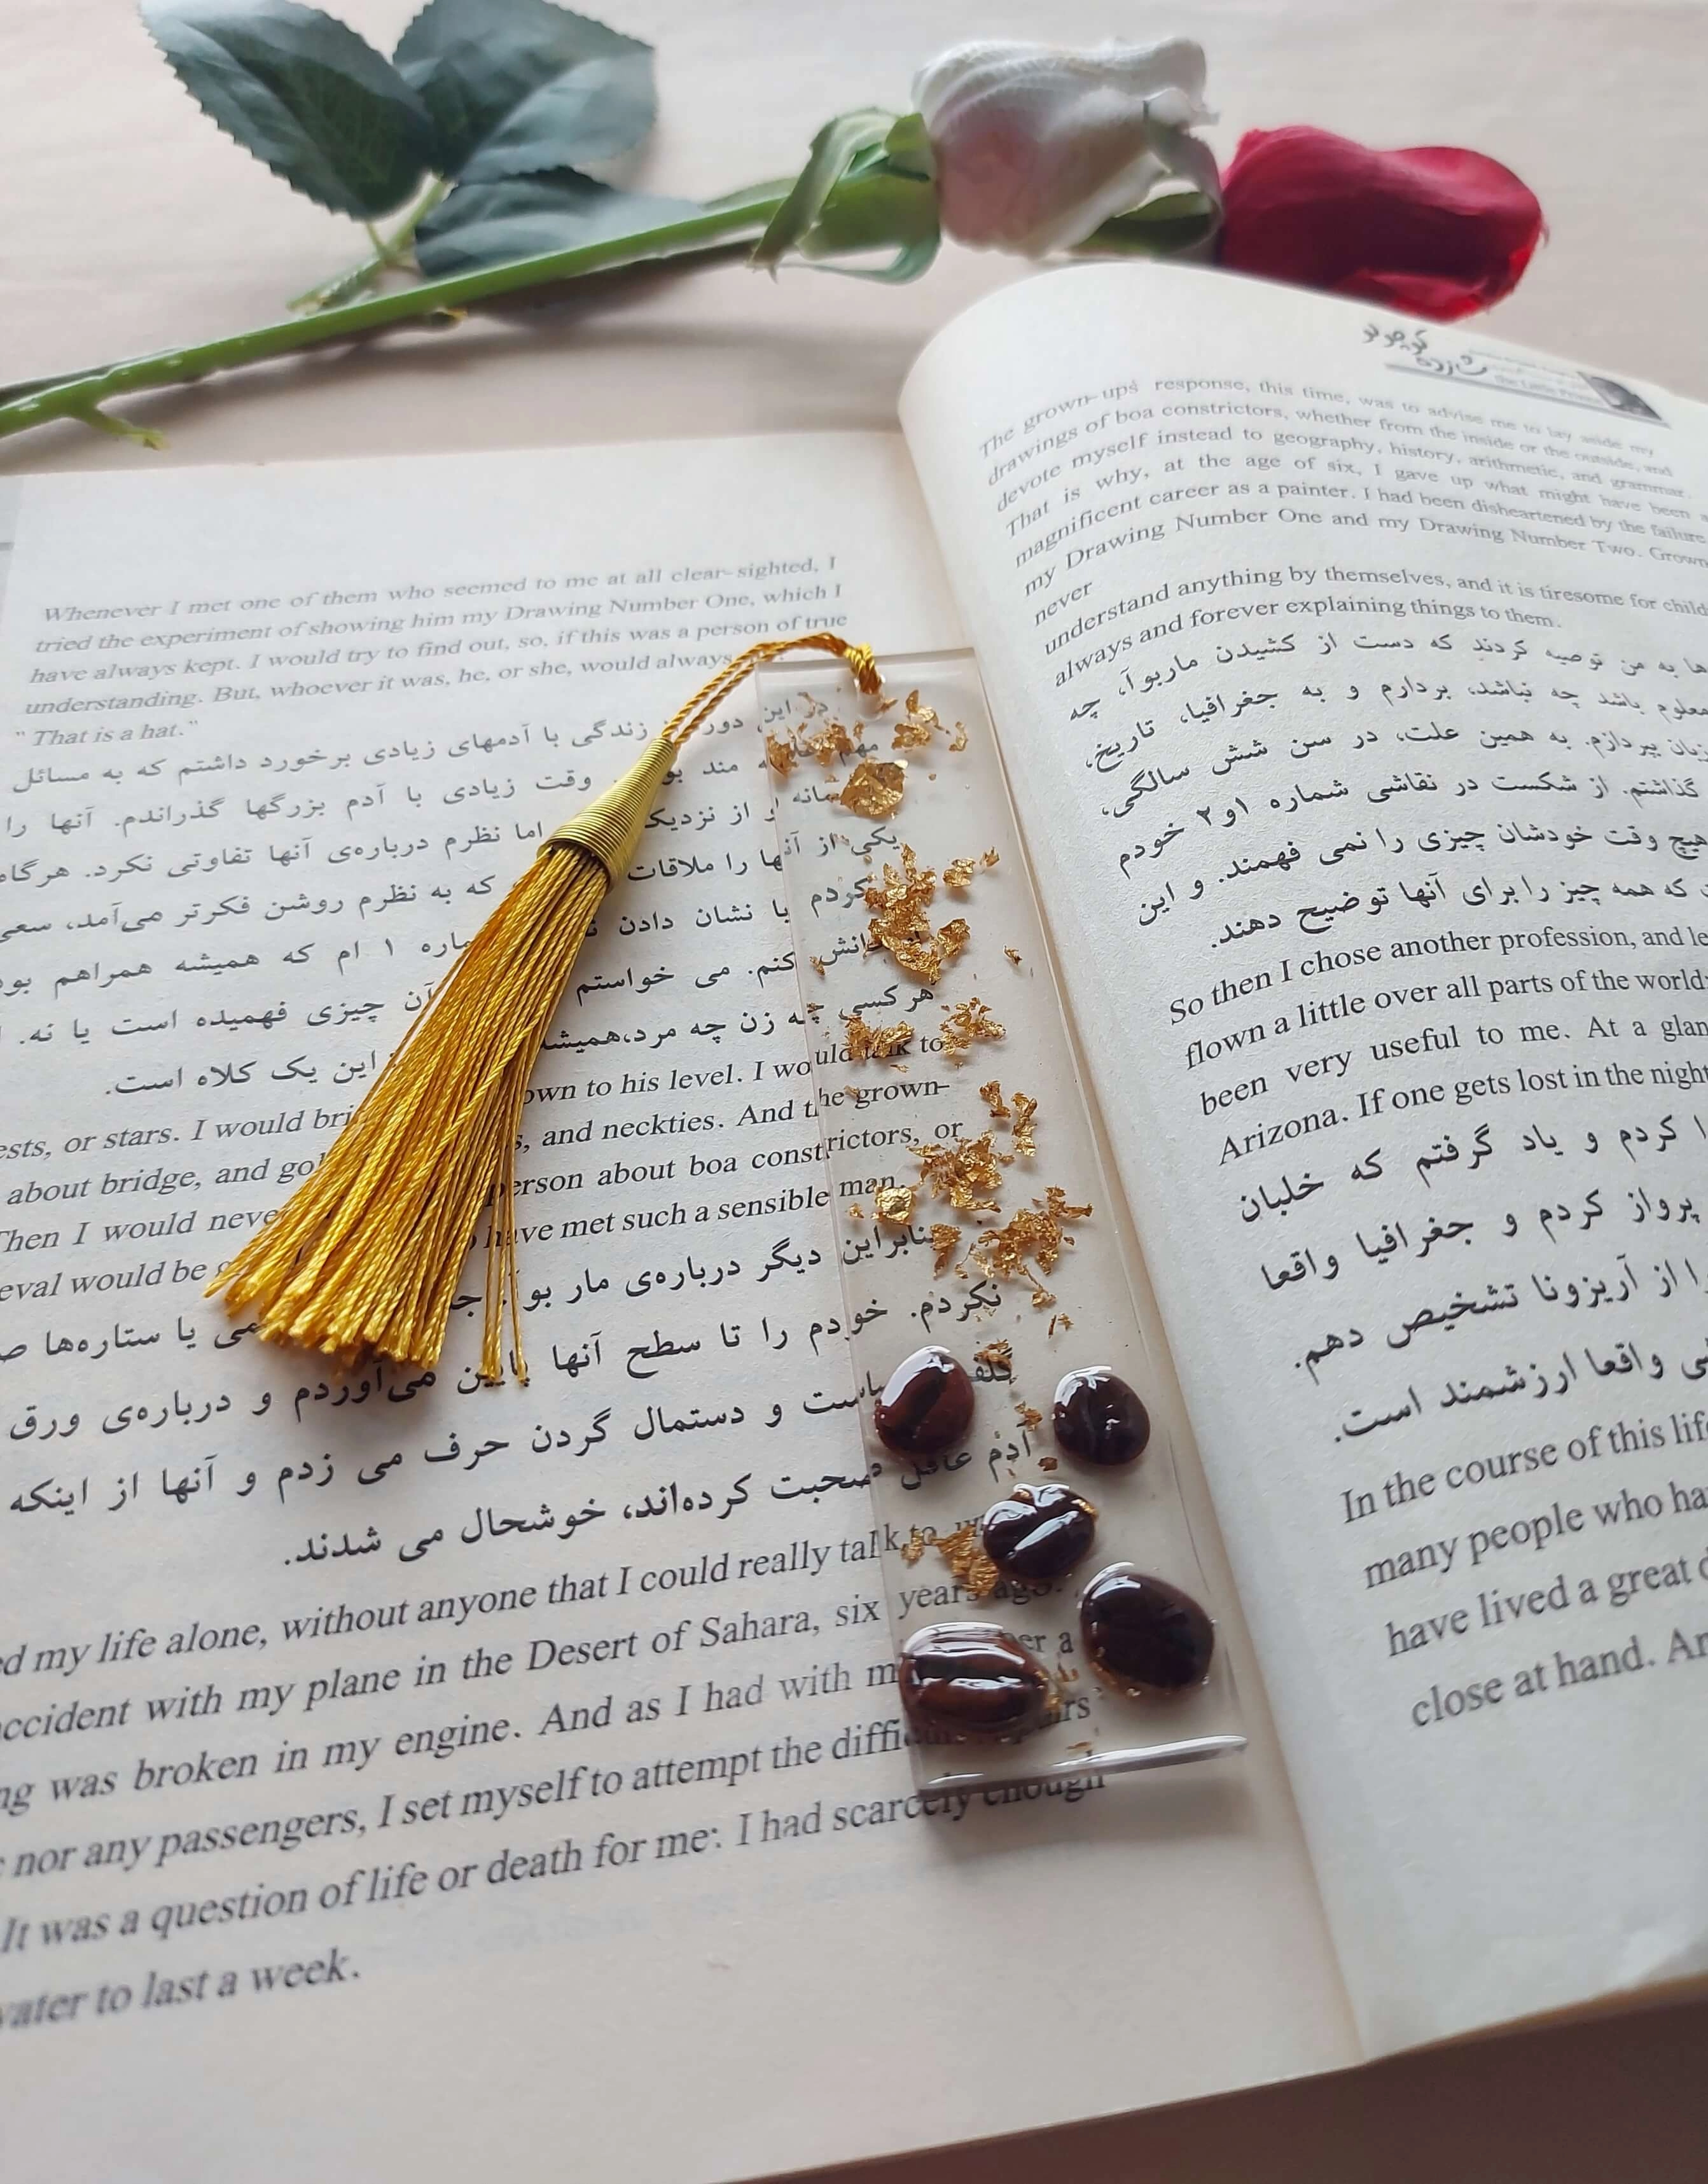 Whenever I met one of them who seemed to me at all clear-sighted, I
tried the experiment of showing him my Drawing Number One, which I
have always kept. I would try to find out, so, if this was a person of true
understanding. But, whoever it was, he, or she, would always
" That is a hat."
در این زندگی با آدمهای زیادی برخورد داشتم که به مسائل
وقت زیادی با آدم بزرگها گذراندم. آنها را
یکی از آنها را ملاقات که به نظرم روشن فکرتر می‌آمد، سعی
کردم با نشان دادن ۱ ام که همیشه همراهم
کنم. می خواستم آن چیزی فهمیده است یا نه.
هرکسی چه زن چه مرد، این یک کلاه است.
to his level. I would talk to
or stars. I would and neckties. And the grown-
about bridge, and person about boa constrictors, or
Then I would have met such a sensible man.
would be
بنابراین دیگر درباره‌ی مار یا ستاره‌ها
نکردم. خودم را تا سطح آنها پایین می‌آوردم و درباره‌ی ورق
و دستمال گردن حرف می زدم و آنها از اینکه
آدم عاقل صحبت کرده‌اند، خوشحال می شدند.
my life alone, without anyone that I could really talk to,
accident with my plane in the Desert of Sahara, six years ago.
was broken in my engine. And as I had with
nor any passengers, I set myself to attempt the difficult
It was a question of life or death for me: I had scarcely enough
water to last a week.
شازده کوچولو
The Little Prince
The grown-ups' response, this time, was to advise me to lay aside my
drawings of boa constrictors, whether from the inside or the outside, and
devote myself instead to geography, history, arithmetic, and grammar.
That is why, at the age of six, I gave up what might have been a
magnificent career as a painter. I had been disheartened by the failure
my Drawing Number One and my Drawing Number Two. Grown
never
understand anything by themselves, and it is tiresome for
always and forever explaining things to them.
ها به من توصیه کردند که دست از کشیدن ماربوآ، چه
معلوم باشد چه نباشد، بردارم و به جغرافیا، تاریخ،
زبان بپردازم. به همین علت، در سن شش سالگی،
گذاشتم. از شکست در نقاشی شماره ۱و۲ خودم
هیچ وقت خودشان چیزی را نمی فهمند. و این
که همه چیز را برای آنها توضیح دهند.
So then I chose another profession, and
flown a little over all parts of the world;
been very useful to me. At a
Arizona. If one gets lost in the night
کردم و یاد گرفتم که خلبان
پرواز کردم و جغرافیا واقعا
را از آریزونا تشخیص دهم.
واقعا ارزشمند است.
In the course of this
many people who
have lived a great
close at hand.